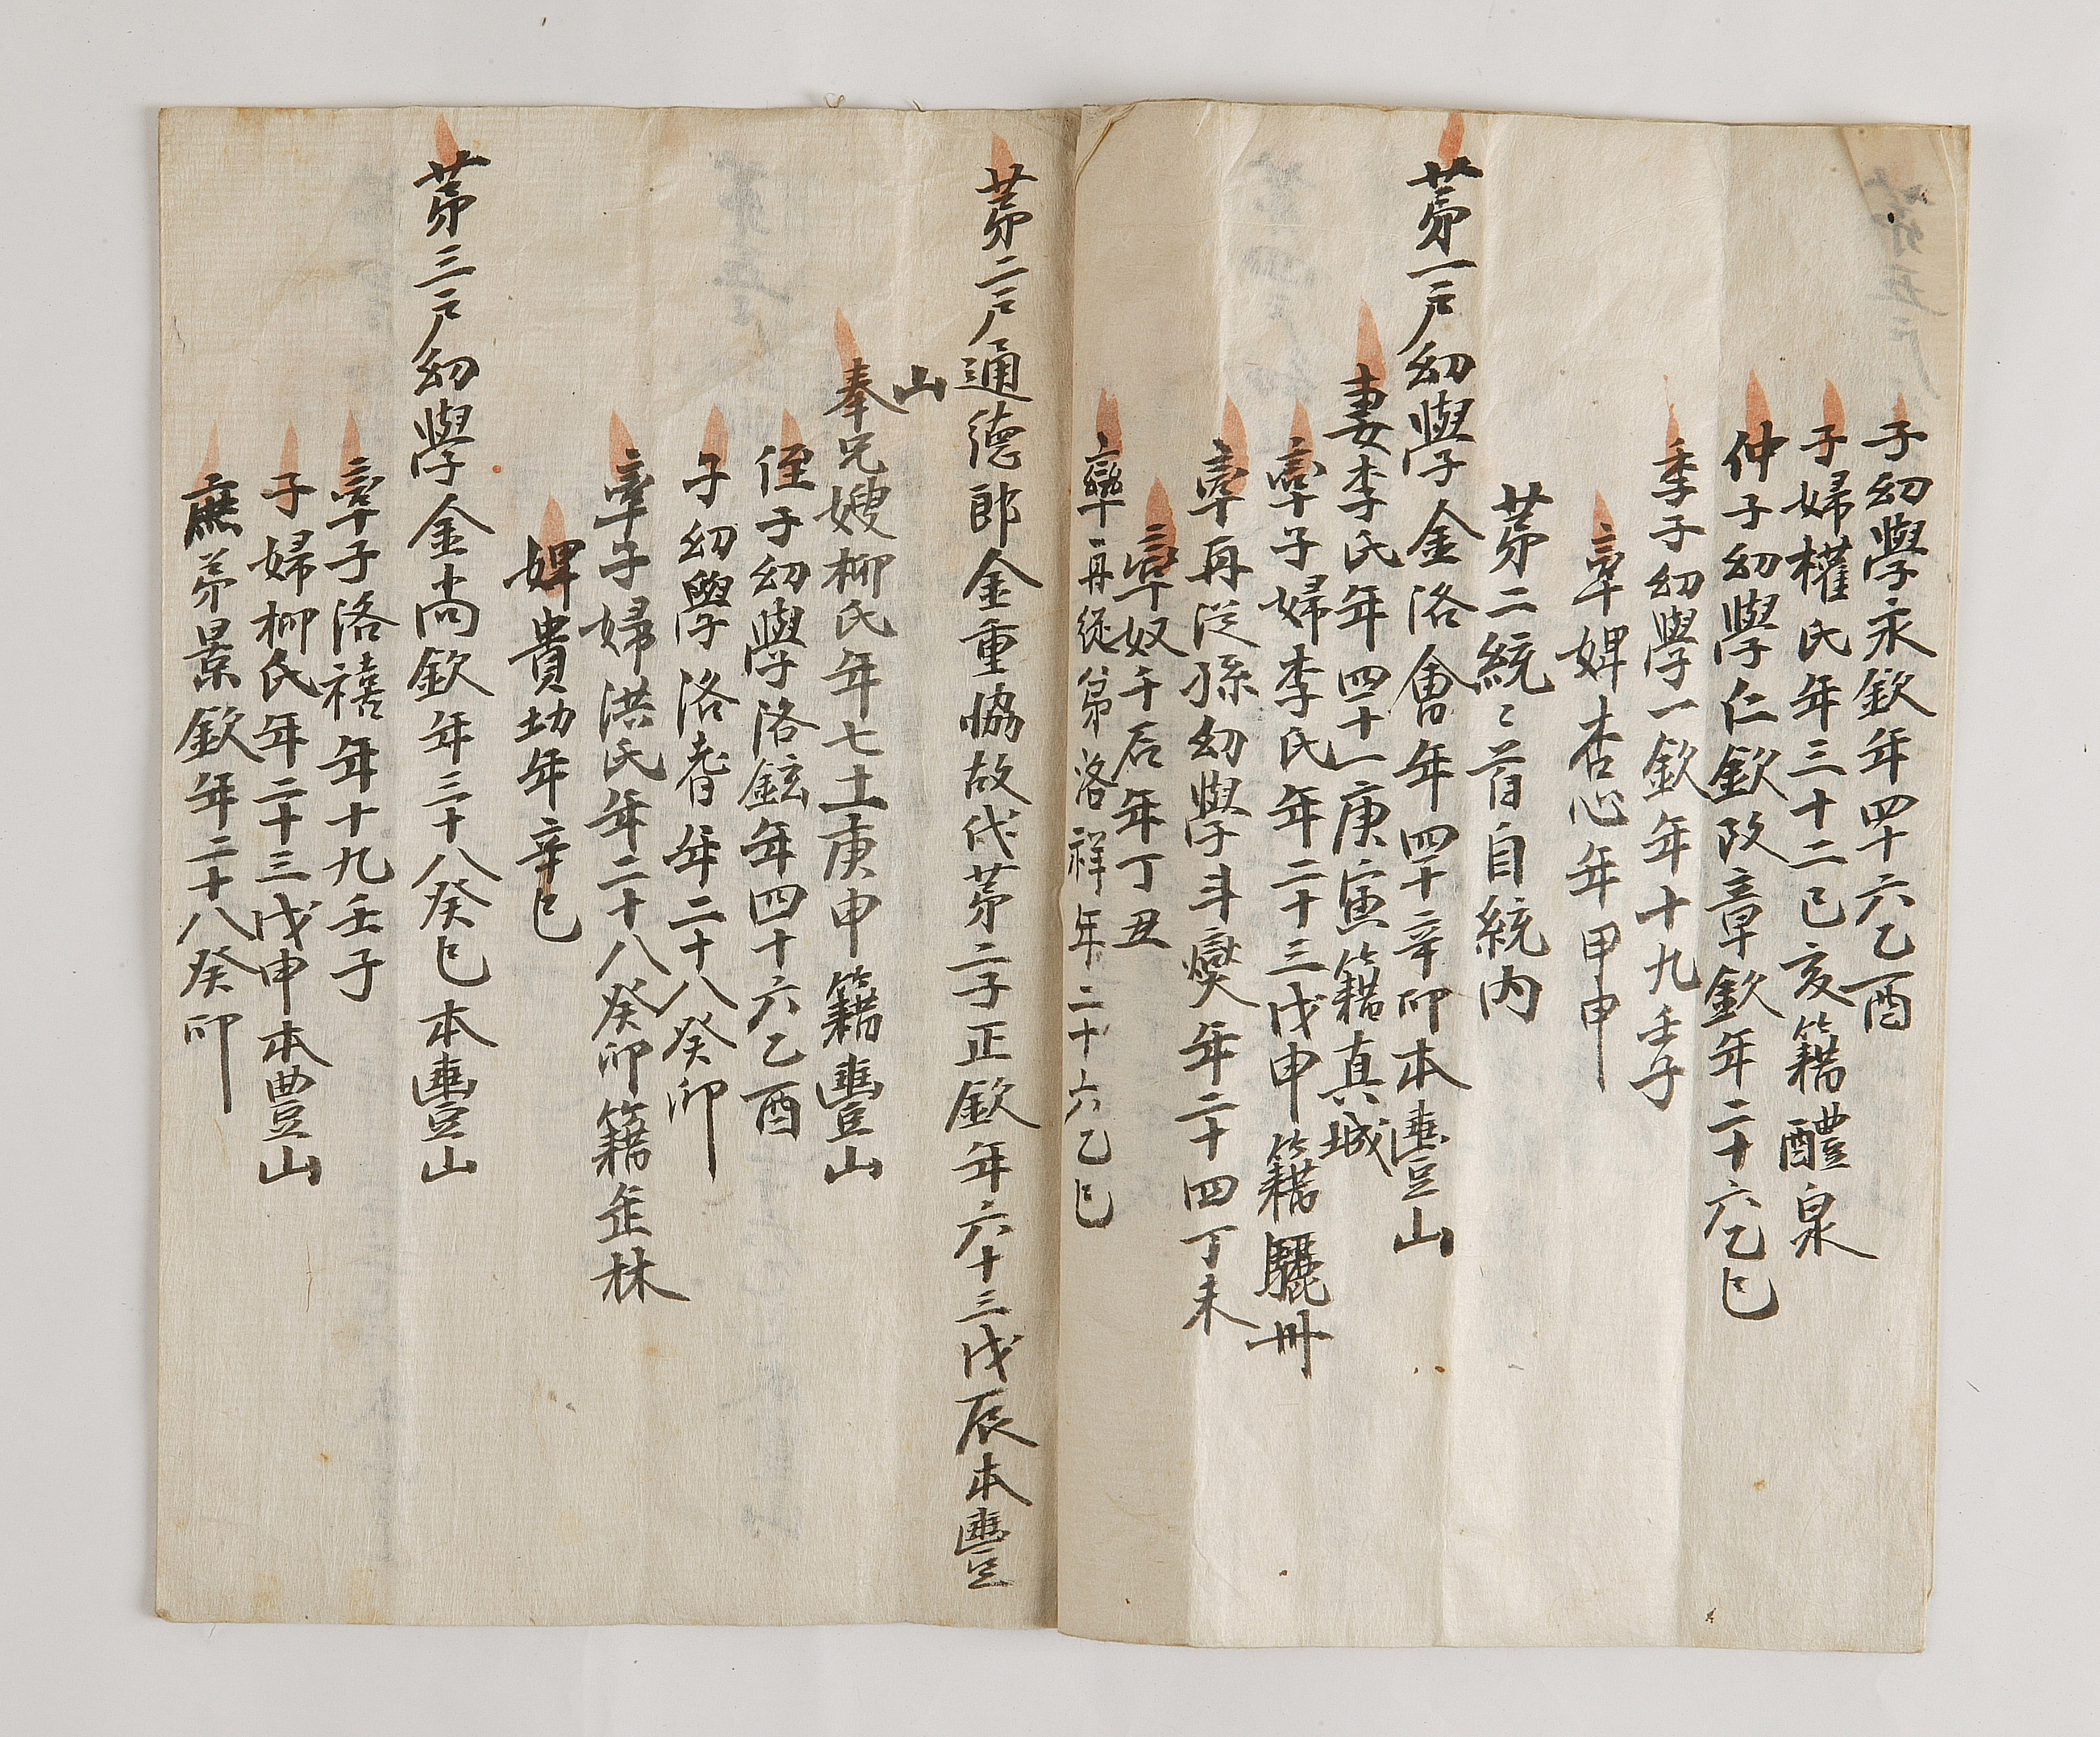 子幼學永欽年四十六乙酉
子婦權氏年三十二己亥籍醴泉
仲子幼學仁欽改章欽年二十六乙巳
季子幼學一欽年十九壬子
率婢杏心年甲申
苐二統〻首自統內
苐一戶幼學金洛會年四十辛卯本豊山
妻李氏年四十一庚寅籍真城
率子婦李氏年二十三戊申籍驪州
率再從孫幼學斗燮年二十四丁未
率奴千石年丁丑
率再從弟洛祥年二十六乙巳
苐二戶通德郎金重恊故代苐二子正欽年六十三戊辰本豊
山
奉兄嫂柳氏年七十一庚申籍豊山
侄子幼學洛鉉年四十六乙酉
子幼學洛耆年二十八癸卯
率子婦洪氏年二十八癸卯籍缶林
婢貴㓛年辛巳
苐三戶幼學金尚欽年三十八癸巳本豊山
率子洛禧年十九壬子
子婦柳氏年二十三戊申本豊山
庶苐景欽年二十八癸卯